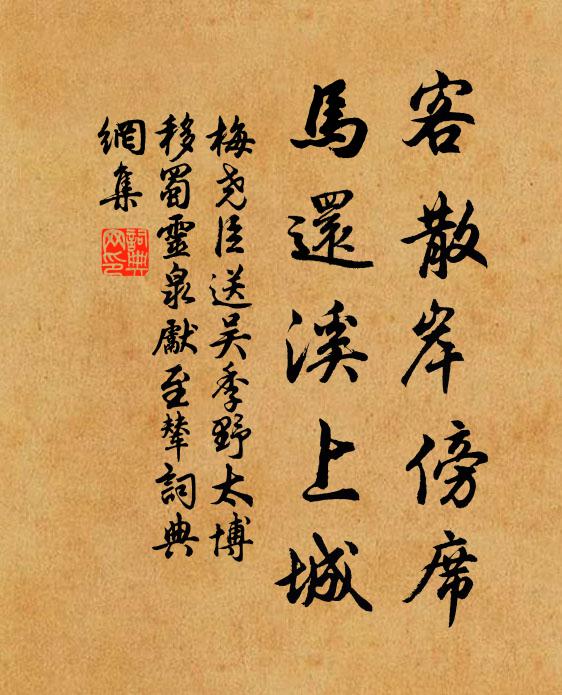 客散岸傍席
馬還溪上城
梅堯臣送吴季野太博
移蜀靈泉獻至輦詞典
網集
詞典
网印